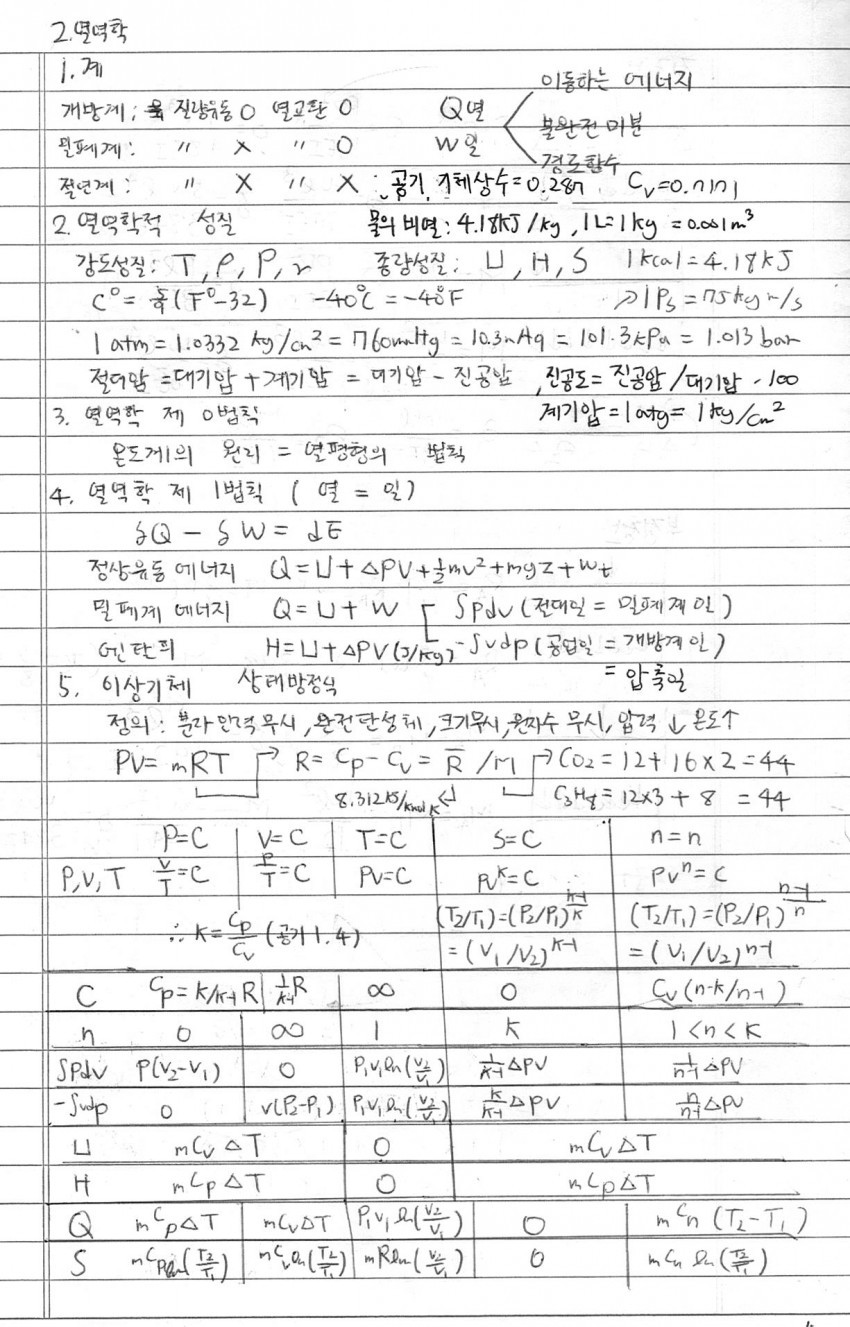 2. 열역학
1. 계
이동하는 에너지
개방계 : 질량유동 O 열교환 O Q열
불완전 미분
밀폐계 : 〃 X 〃 O W일
경로함수
절연계 : 〃 X 〃 X ∴ 공기 기체상수 = 0.287 Cv=0.717
2. 열역학적 성질 물의 비열 : 4.18kJ/kg, 1L=1kg = 0.001m³
강도성질 : T, ρ, P, v 종량성질 : U, H, S 1kcal = 4.18kJ
C° = 5/9(F°-32) -40℃ = -40℉ → 1Ps = 75kg m/s
1atm = 1.0332 kg/cm² = 760mmHg = 10.3mAq = 101.3kPa = 1.013 bar
절대압 = 대기압 + 계기압 = 대기압 - 진공압, 진공도 = 진공압/대기압 · 100
3. 열역학 제 0법칙 계기압 = 1atg = 1kg/cm²
온도계의 원리 = 열평형의 법칙
4. 열역학 제 1법칙 ( 열 = 일 )
δQ - δW = dE
정상유동 에너지 Q = U + ΔPV + ½mv² + mgz + Wt
밀폐계 에너지 Q = U + W ∫Pdv (절대일 = 밀폐계 일)
엔탈피 H = U + ΔPV (J/kg) -∫vdp (공업일 = 개방계 일)
= 압축일
5. 이상기체 상태방정식
정의 : 분자 인력 무시, 완전탄성체, 크기무시, 원자수 무시, 압력 ↓ 온도↑
PV = mRT → R = Cp - Cv = R̄ /M → CO₂ = 12 + 16 × 2 = 44
8.312kJ/kmol K C₃H₈ = 12×3 + 8 = 44
P=C V=C T=C S=C n=n
P, V, T V/T=C P/T=C PV=C PV^k=C PV^n=C
(T₂/T₁)=(P₂/P₁)^(k-1)/k (T₂/T₁)=(P₂/P₁)^(n-1)/n
∴ K = Cp/Cv (공기 1.4) = (V₁/V₂)^k-1 = (V₁/V₂)^n-1
C Cp = K/K-1 R 1/K-1 R ∞ 0 Cv(n-k/n-1)
n 0 ∞ 1 K 1<n<K
∫Pdv P(V₂-V₁) 0 P₁V₁ln(V₂/V₁) 1/K-1 ΔPV 1/n-1 ΔPV
-∫vdp 0 V(P₂-P₁) P₁V₁ln(V₂/V₁) K/K-1 ΔPV n/n-1 ΔPV
U mCvΔT 0 mCvΔT
H mCpΔT 0 mCpΔT
Q mCpΔT mCvΔT P₁V₁ln(V₂/V₁) 0 mCn (T₂-T₁)
S mCpln(T₂/T₁) mCvln(T₂/T₁) mRln(V₂/V₁) 0 mCn ln(T₂/T₁)